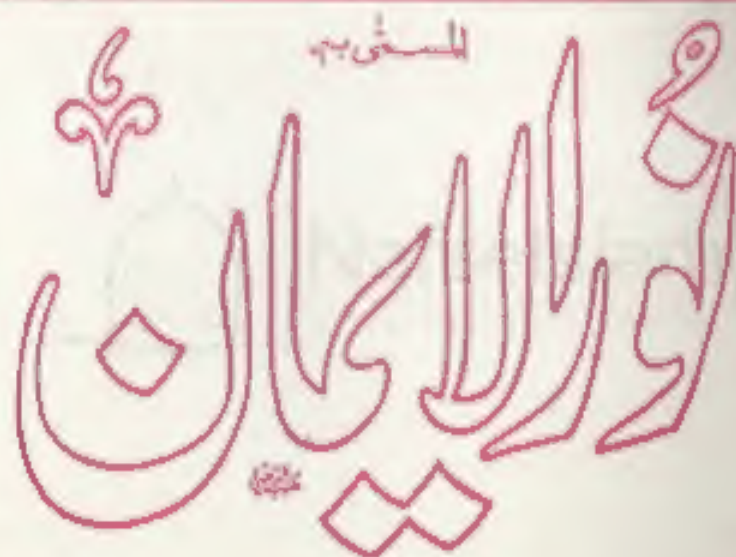 المسمّٰی بہ
نُورالایمان